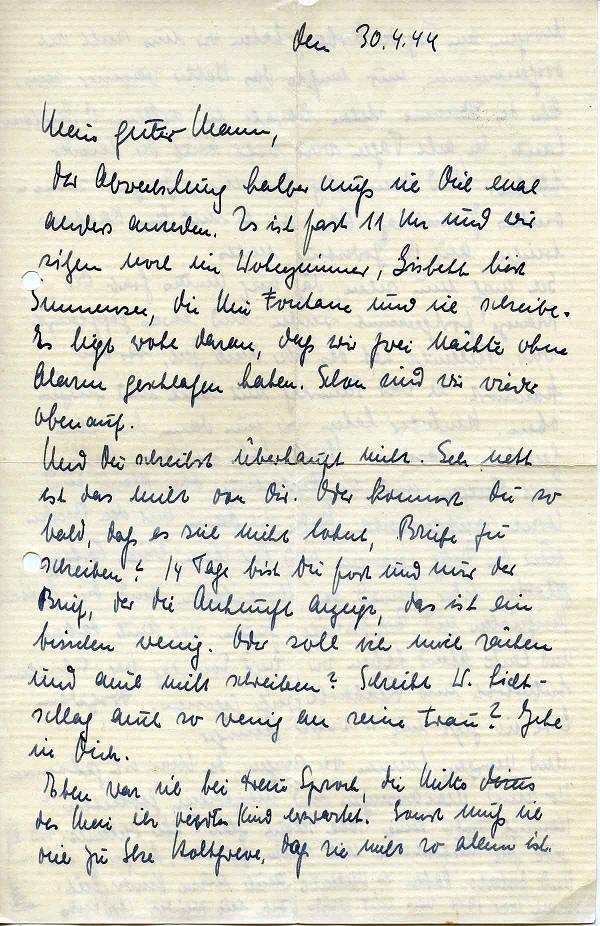 den 30.4.44
Mein guter Mann,
der Abwechslung halber muß ich Dich mal
anders anreden. Es ist fast 11 Uhr und wir
sitzen noch im Wohnzimmer, Lisbeth liest
Immensee, die Fontane und ich schreibe.
Es liegt wohl daran, daß wir zwei Nächte ohne
Alarm geschlafen haben. Schon sind wir wieder
obenauf.
Und Du schreibst überhaupt nicht. Sehr nett
ist das nicht von Dir. Oder kommst Du so
bald, daß es sich nicht lohnt, Briefe zu
schreiben? 14 Tage bist Du fort und nur der
Brief, der die Ankunft anzeigt, das ist ein
bisschen wenig. Oder soll ich mich rächen
und auch nicht schreiben? Schreibt W. Licht-
schlag auch so wenig an seine Frau? Gehe
in Dich.
Eben war ich bei Frau die Mitte
des Mai ihr viertes Kind erwartet. Sonst muß ich
viel zu Else Holtgreve, daß sie nicht so allein ist.